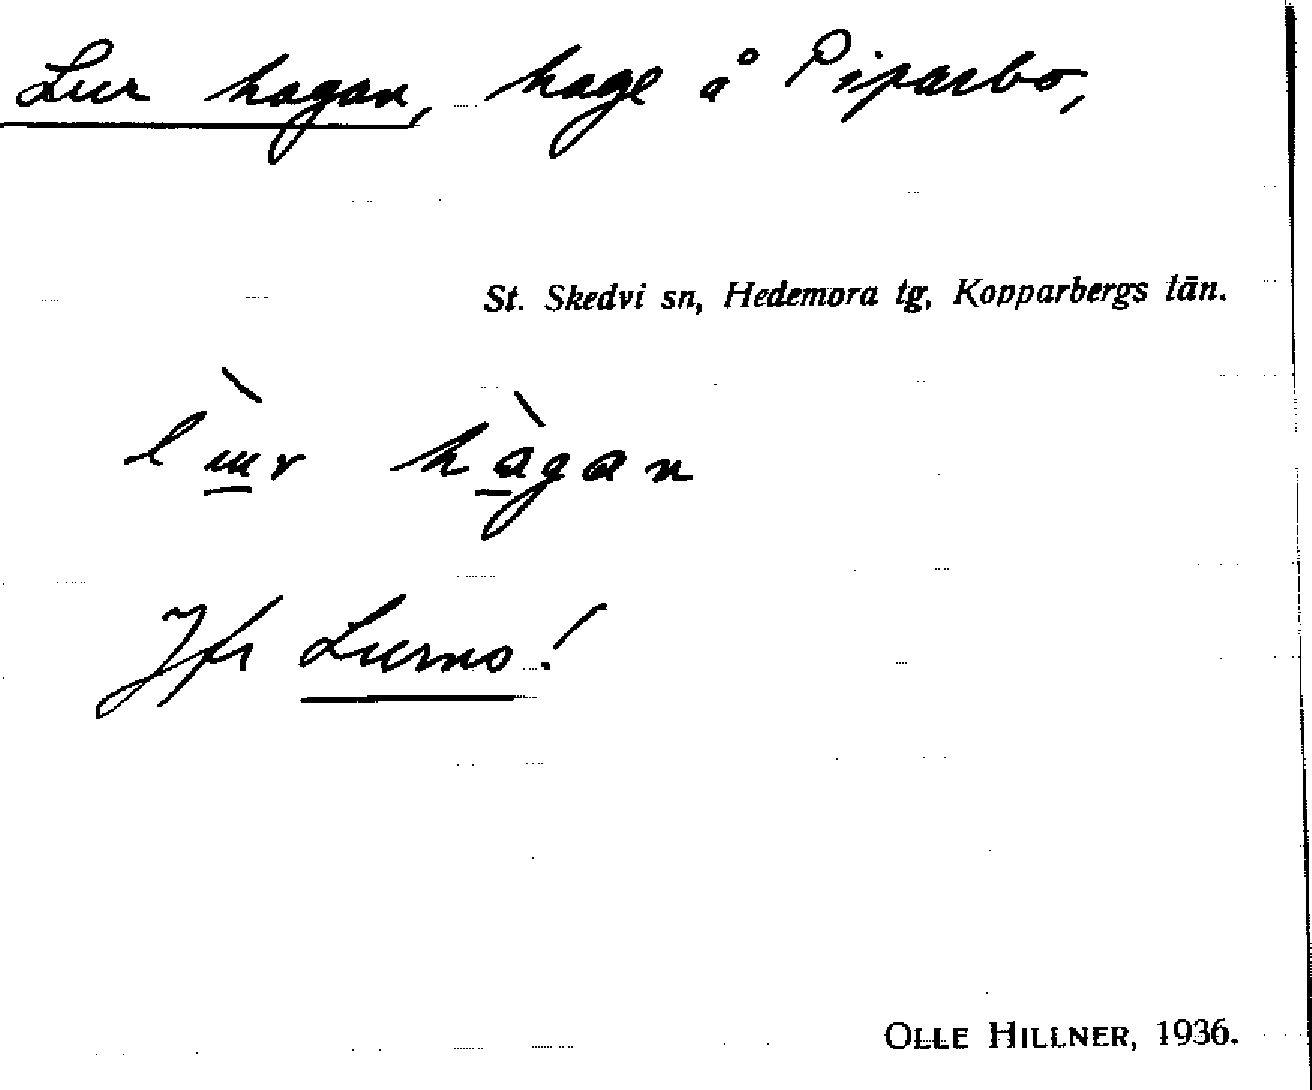 Lur hagan, hage å Piparbo,
St. Skedvi sn, Hedemora tg, Kopparbergs län.
hàgan
Jfr Lurmo!
OLLE HILLNER, 1936.